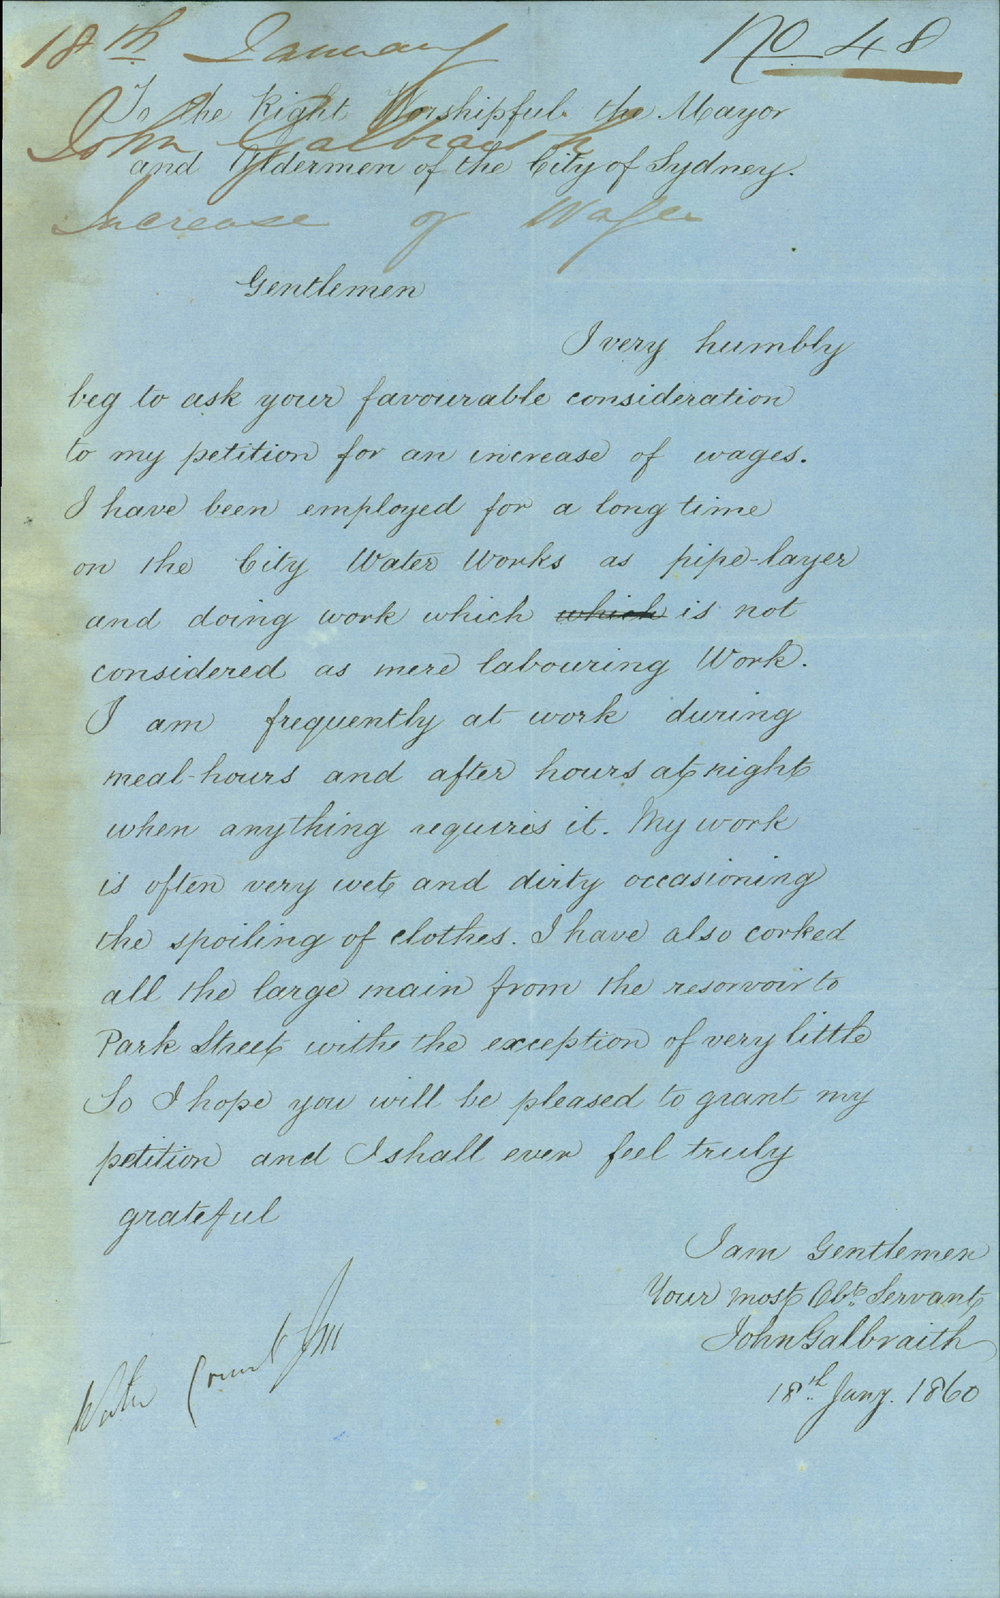 18th January
No 48
To the Right Worshipful the Mayor
John Galbraith
and Aldermen of the City of Sydney.
Increase of Wages
Gentlemen
I very humbly
beg to ask your favourable consideration
to my petition for an increase of wages.
I have been employed for a long time
on the City Water Works as pipe-layer
and doing work which which is not
considered as mere labouring Work.
I am frequently at work during
meal-hours and after hours at night
when anything requires it. My work
is often very wet and dirty occasioning
the spoiling of clothes. I have also corked
all the large main from the resorvoir to
Park Street with the exception of very little
So I hope you will be pleased to grant my
petition and I shall ever feel truly
grateful
I am Gentlemen
Your most Obt. Servant
John Galbraith
18th Jany. 1860
Water